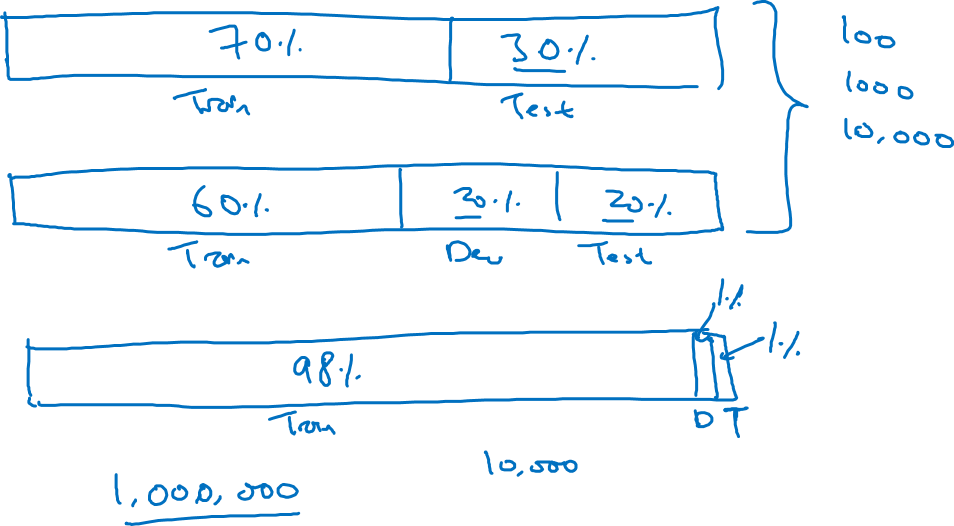 70% 30%
Train Test
100
1000
10,000
60% 20% 20%
Train Dev Test
1% 1%
98%
Train D T
10,000
1,000,000